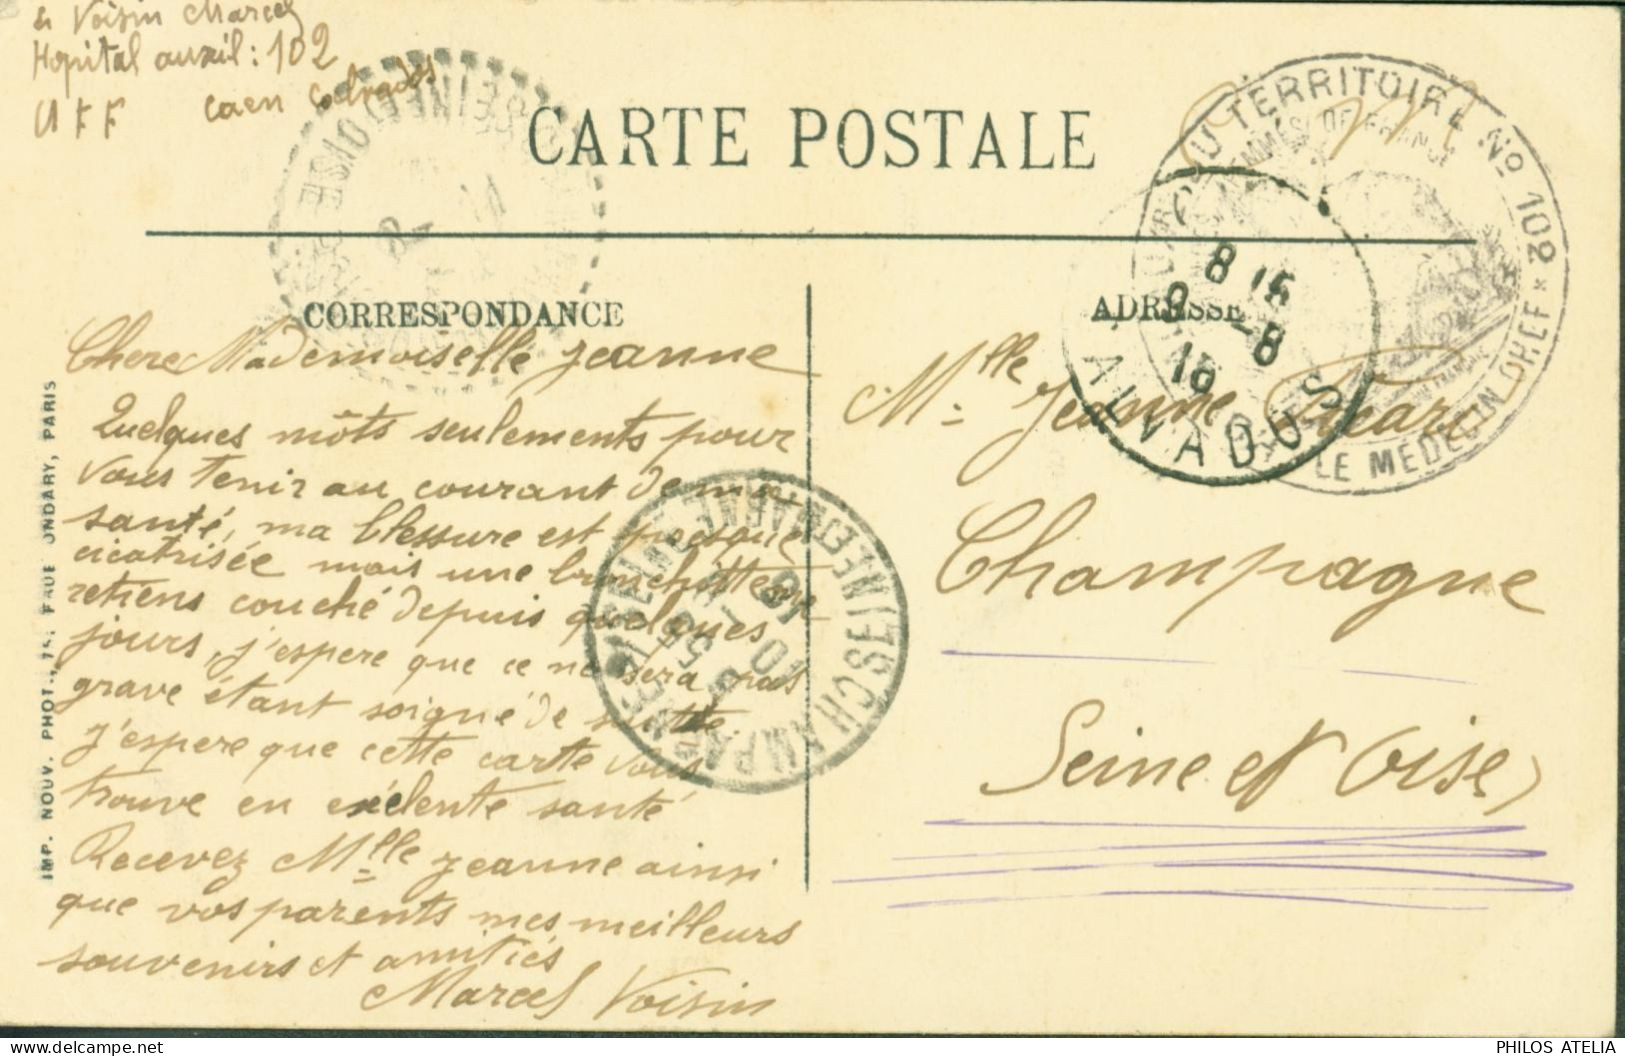 Voisin Marcel
Hopital auxil: 102
U F F caen calvados
CARTE POSTALE
F. M
DU TERRITOIRE No 102 *
FEMMES DE FRANCE
LE MÉDECIN CHEF *
CORRESPONDANCE
ADRESSE
8 15
9 -8
16
CALVADOS
Chere Mademoiselle Jeanne
Quelques mots seulements pour
vous tenir au courant de ma
santé, ma blessure est presque
cicatrisée mais une bronchitte me
retiens couché depuis quelques
jours, j'espere que ce ne sera pas
grave étant soigné de suitte.
j'espere que cette carte vous
trouve en exelente santé
Recevez Mlle Jeanne ainsi
que vos parents mes meilleurs
souvenirs et amitiés
Marcel Voisin
Mlle Jeanne
Champagne
Seine et Oise
SEINE ET OISE
IMP. NOUV. PHOT.,
ONDARY, PARIS
PHILOS ATELIA